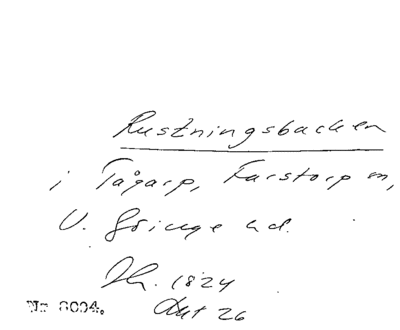 Rustningsbacken
i Tågarp, Farstorp sn,
V. Göinge hd.
1824
26
Nr 8004.